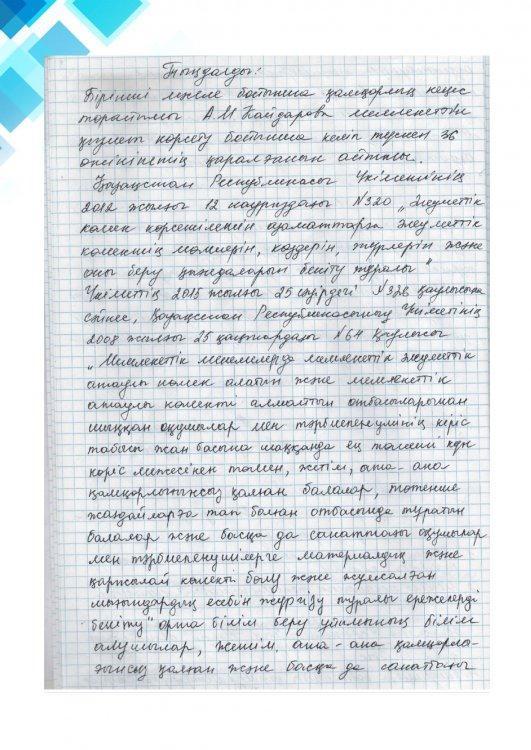 Тыңдалды:
Бірінші мәселе бойынша қамқорлық кеңес
төрайымы А.М Кайдарова мемлекеттік
қызмет көрсету бойынша келіп түскен 36
өтініштің қаралғанын айтты.
Қазақстан Республикасы Үкіметінің
2012 жылғы 12 наурыздағы №320 „Әлеуметтік
көмек көрсетілетін азаматтарға әлеуметтік
көмектің мөлшерін, көздерін, түрлерін және
оны беру қағидаларын бекіту туралы"
Үкіметтің 2015 жылғы 25 сәуірдегі №326 қаулысына
сәйкес, Қазақстан Республикасының Үкіметінің
2008 жылғы 25 қаңтардағы №64 қаулысы
„Мемлекеттік мекемелерде мемлекеттік әлеуметтік
атаулы көмек алатын және мемлекеттік
атаулы көмекті алмайтын отбасыларынан
шыққан оқушылар мен тәрбиеленушінің кіріс
табысы жан басына шаққанда ең төменгі күн
көріс межесінен төмен, жетім, ата-ана
қамқорлығынсыз қалған балалар, төтенше
жағдайларға тап болған отбасында тұратын
балалар және басқа да санаттағы оқушылар
мен тәрбиеленушілерге материалдық және
қаржылай көмекті бөлу және жұмсалған
шығындардың есебін жүргізу туралы ережелерді
бекіту" орта білім беру ұйымының білім
алушылар, жетім, ата-ана қамқорлы-
ғынсыз қалған және басқа да санаттағы